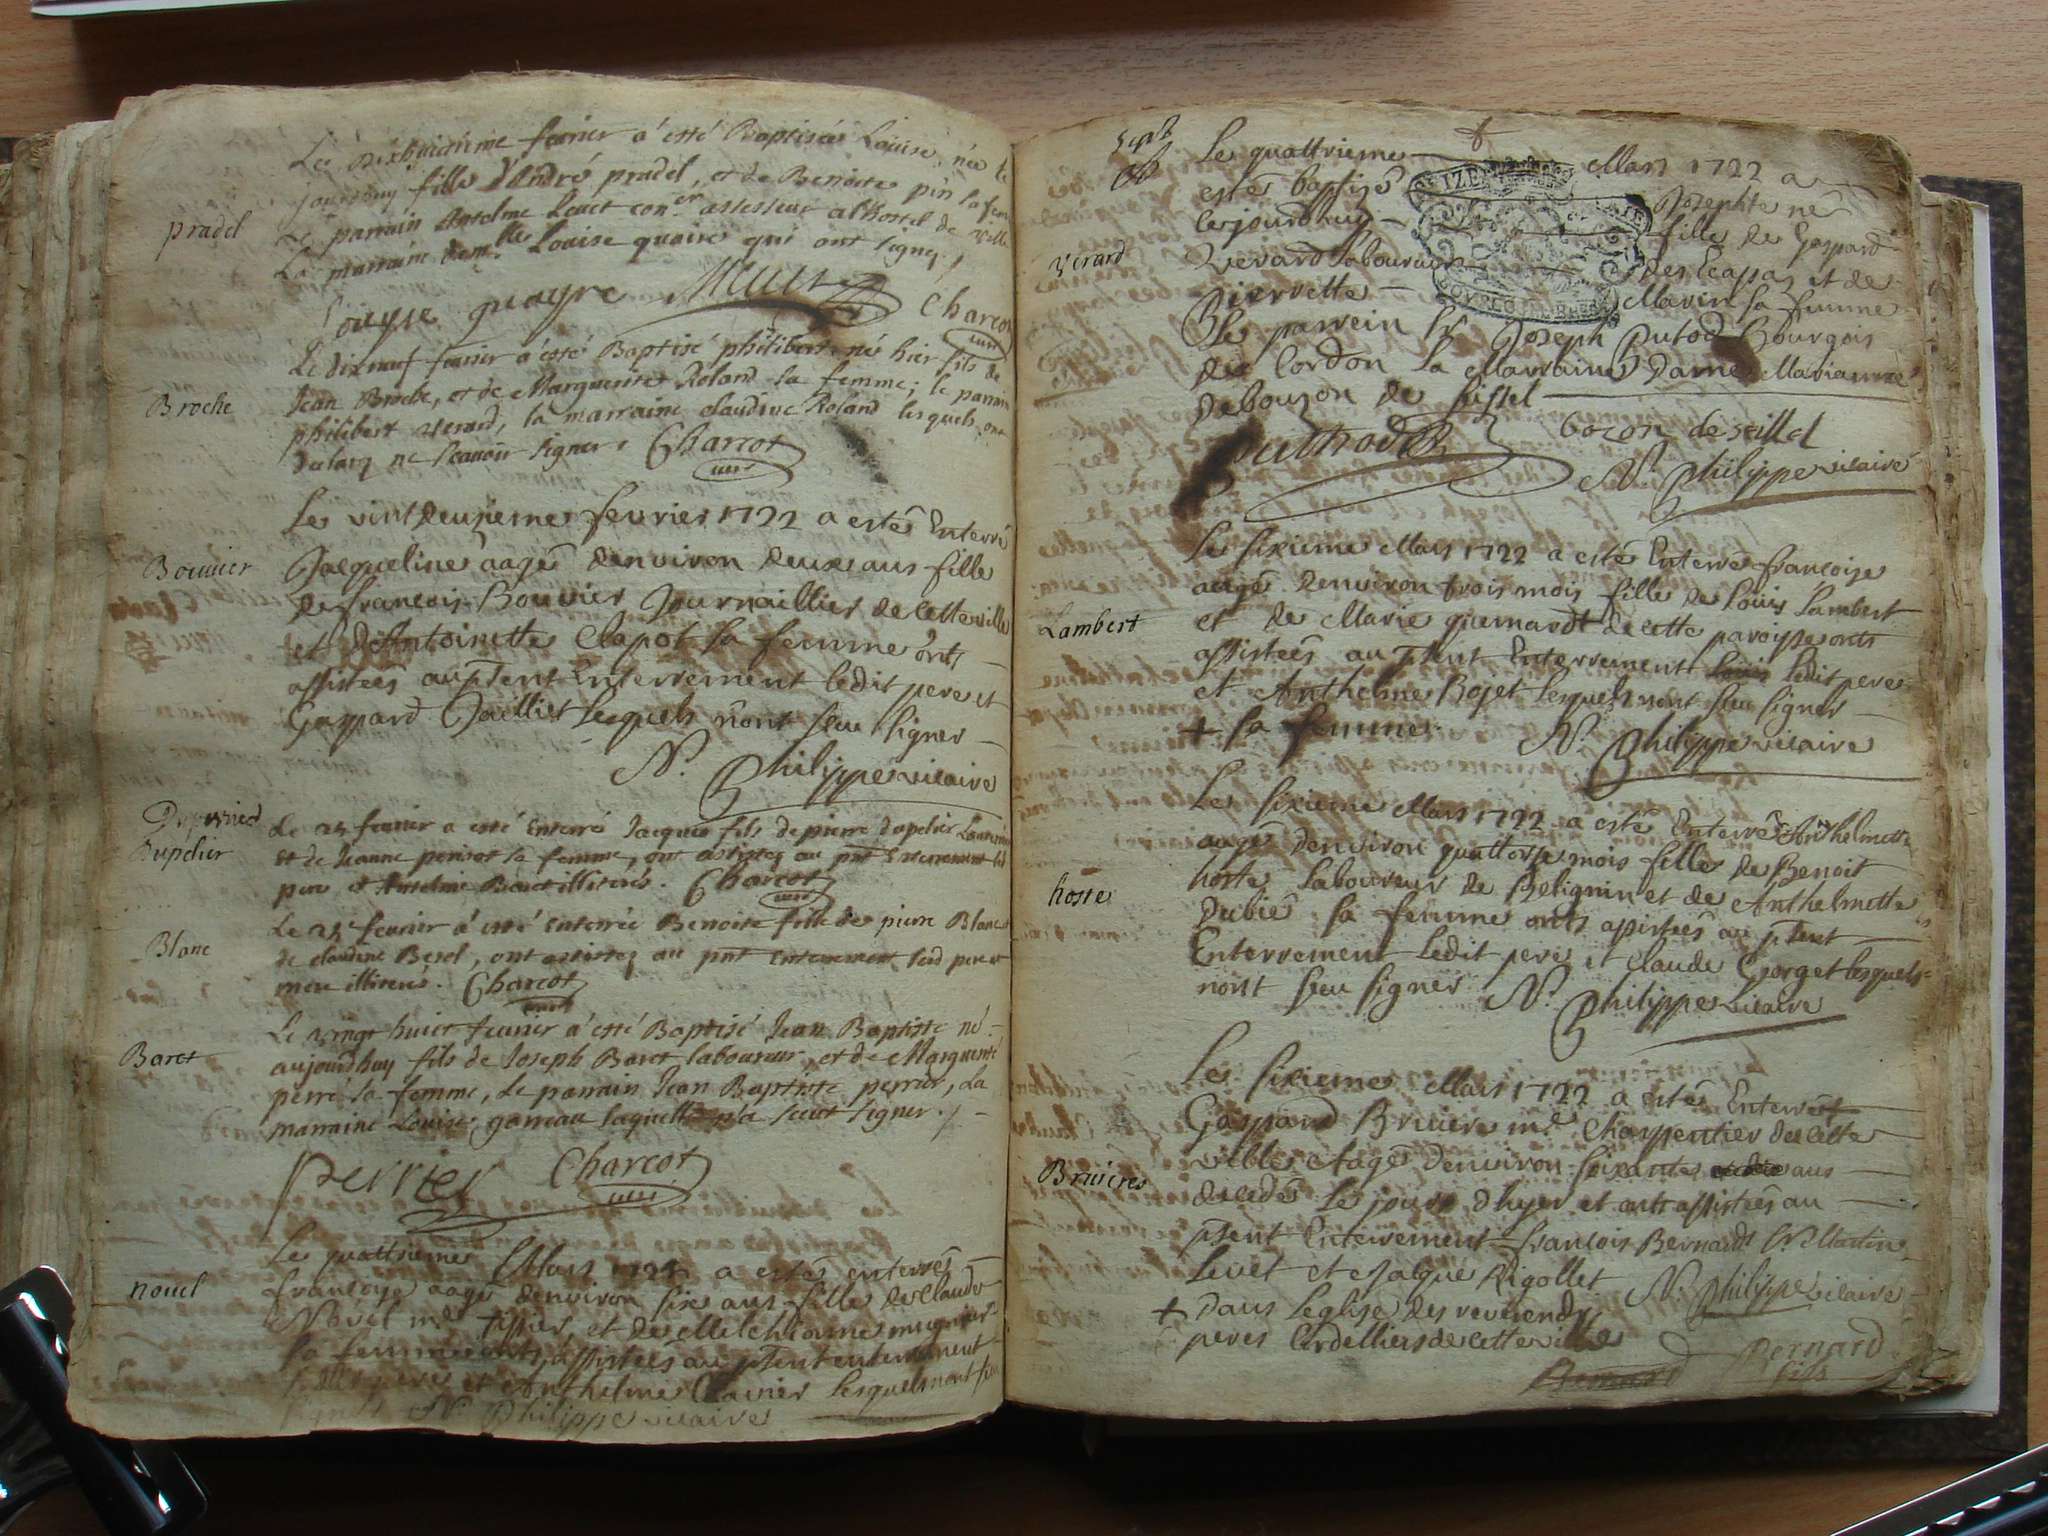 Le dixhuictiême feurier a esté Baptisée Louise, née le
jourdhuy fille d'André pradel, et de Benoite pin sa fem
pradel
Le parrain Anselme Leuet con.er assesseur a l'hostel de ville
La marraine dam.lle Louise quaire qui ont signez
Louyse quayre Leuet Charcot
Le dixneuf feurier a esté Baptisé philibert né hier fils de
Broche
Jean Broche, et de Marguerite Roland sa femme; le parrain
philibert verard, la marraine claudine Roland lesquels ont
declarez ne scauoir signer. Charcot
Le vint deuxieme fevrier 1722 a estés Enterré
Bouuier
Jacqueline aagé denviron deux ans fille
de francois Bouvier Journaillier de cette ville
et d'Antoinette Clapot sa femme onts
assistees au pñt Enterrement ledit pere et
Gaspard Jaillet lesquels nont sceu signer
N. Philippe vicaire
Dupelier
Le 25 feurier a esté Enterré Jacques fils de pierre dupelier
et de Jeanne perisot sa femme, ont assistez au pnt Enterrement led
pere et Anselme Baret illiterés. Charcot
Le 25 feurier a esté Enterrée Benoite fille de pierre Blanc et
Blanc
de claudine Berel, ont assistez au pnt Enterrement led pere et
mere illiterés. Charcot
Le vingt huict feurier a esté Baptisé Jean Baptiste né
Baret
aujourdhuy fils de Joseph Baret laboureur, et de Marguerite
perré sa femme, Le parrain Jean Baptiste perrier, La
marraine Louise garreau laquelle n'a sceut signer.
perrier Charcot
Le quattrieme Mars 1722 a estés enterrés
nouel
francoise aagé denviron six ans fille de Claude
Novel m.e tissier, et de Melchionne
sa femme onts assistees au pñt enterrement
ledit pere et Anthelme lesquels nont sceu
signer N. Philippe vicaire
Sept
Le quattrieme Mars 1722 a
estés baptisé Josephte né
le jourdhuy fille de Gaspard
verard
Verard laboureur des Ecassas et de
Pierrette Mavin sa femme
le parrein Sr. Joseph Putod Bourgois
de Cordon la Marraine Dame Marianne
de bouzon de seissel
puthod bozon de seillel
N. Philippe vicaire
Le sixieme Mars 1722 a esté Enterré francoise
aagé denviron trois mois fille de Loüis Lambert
Lambert
et de Marie quemardt de cette paroisse onts
assistees au pñt Enterrement ledit pere
et Anthelme Bojet lesquels nont sceu signer
+ sa femme N. Philippe vicaire
Le sixieme Mars 1722 a estés Enterré Anthelmette
aagé denviron quattorse mois fille de Benoit
hoste
hoste laboureur de Belignin et de Anthelmette
Dubié sa femme onts assistées au pñt
Enterrement ledit pere et claude Gorget lesquels
nont sceu signer N. Philippe vicaire
Le sixieme Mars 1722 a estés Enterrés
Gaspard Bruiere m.e Charpentier de cette
ville Aagé denviron soixante ans
Bruieres
decedés le jour d'hyer et onts assistées au
pñt Enterrement francois Bernard Sr. Martin
Levet et Jaque Rigollet N. Philippe vicaire
+ dans l'eglise des reverends
peres Cordelliers de cette ville
Bernard Bernard
fils